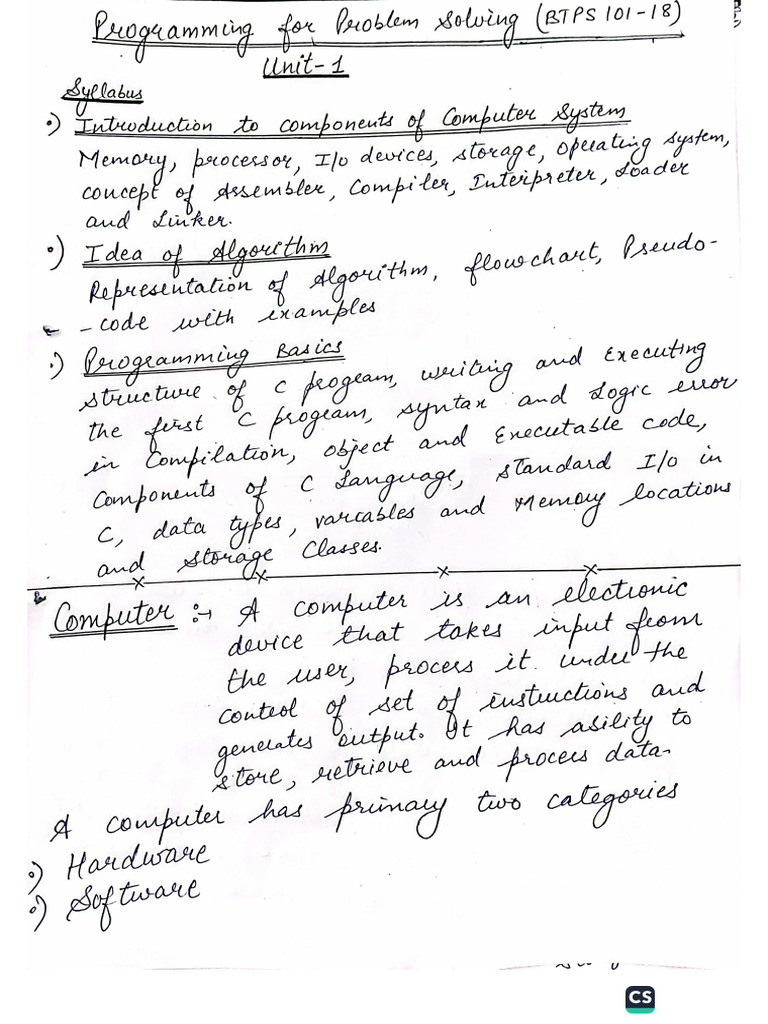 Programming for Problem Solving (BTPS 101-18)
Unit-1
Syllabus
•) Introduction to components of Computer System
Memory, processor, I/o devices, storage, operating system,
concept of Assembler, Compiler, Interpreter, Loader
and Linker.
•) Idea of Algorithm
Representation of Algorithm, flowchart, Pseudo-
-code with examples
•) Programming Basics
Structure of C program, writing and Executing
the first C program, syntax and Logic error
in Compilation, object and Executable code,
Components of C Language, standard I/o in
C, data types, variables and Memory locations
and Storage Classes.
Computer :→ A computer is an electronic
device that takes input from
the user, process it under the
control of set of instructions and
generates output. It has ability to
store, retrieve and process data.
A computer has primary two categories
•) Hardware
•) Software
CS